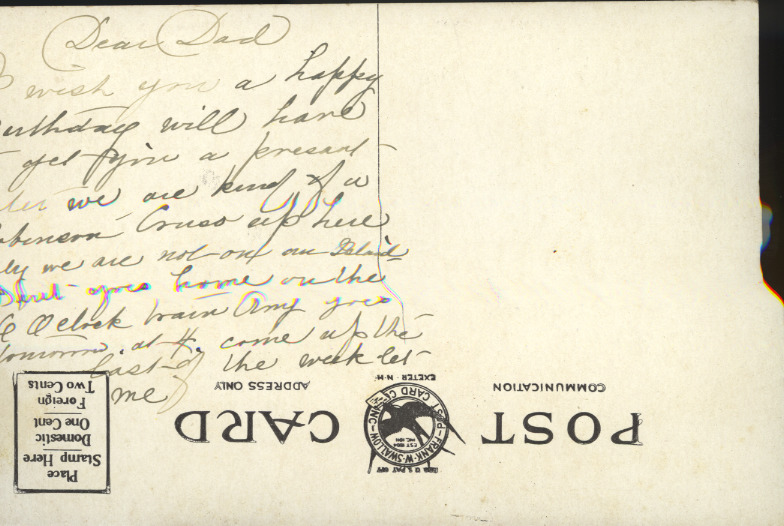 Dear Dad
I wish you a happy
Birthday will have
get you a present
we are kind of a
Robinson Cruso up here
only we are not on an Island
goes home on the
O'clock train Amy goes
tomorrow at 4. come up the
last of the week let
me
Place
Stamp Here
Domestic
One Cent
Foreign
Two Cents
POST CARD
COMMUNICATION
ADDRESS ONLY
FRANK W. SWALLOW POST CARD CO. INC.
EXETER N·H·